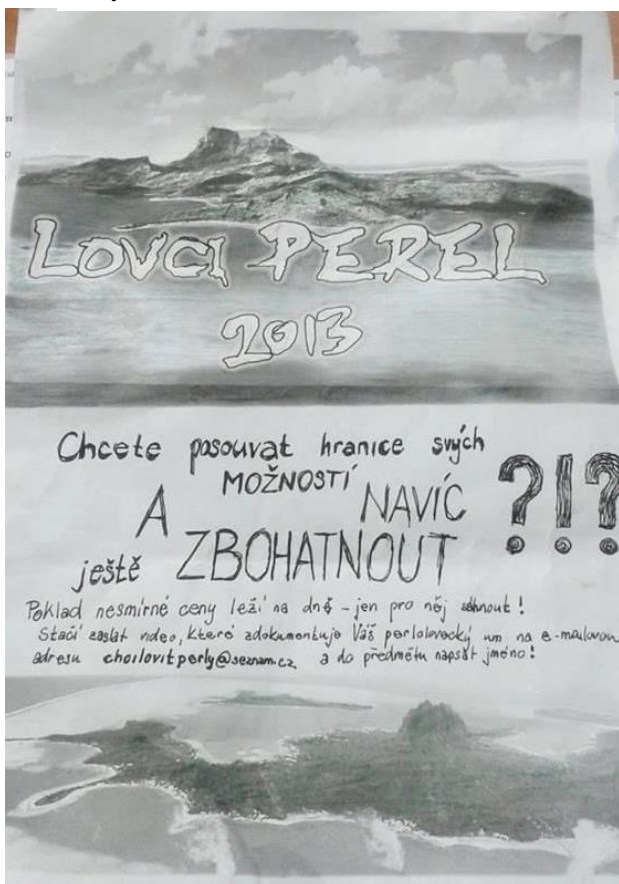 LOVCI PEREL
2013
Chcete posouvat hranice svých
MOŽNOSTÍ
A NAVÍC ?!?
ještě ZBOHATNOUT
Poklad nesmírné ceny leží na dně - jen pro něj sáhnout!
Stačí zaslat video, které zdokumentuje Váš perlolovecký um na e-mailovou
adresu chcilovitperly@seznam.cz a do předmětu napsat jméno!